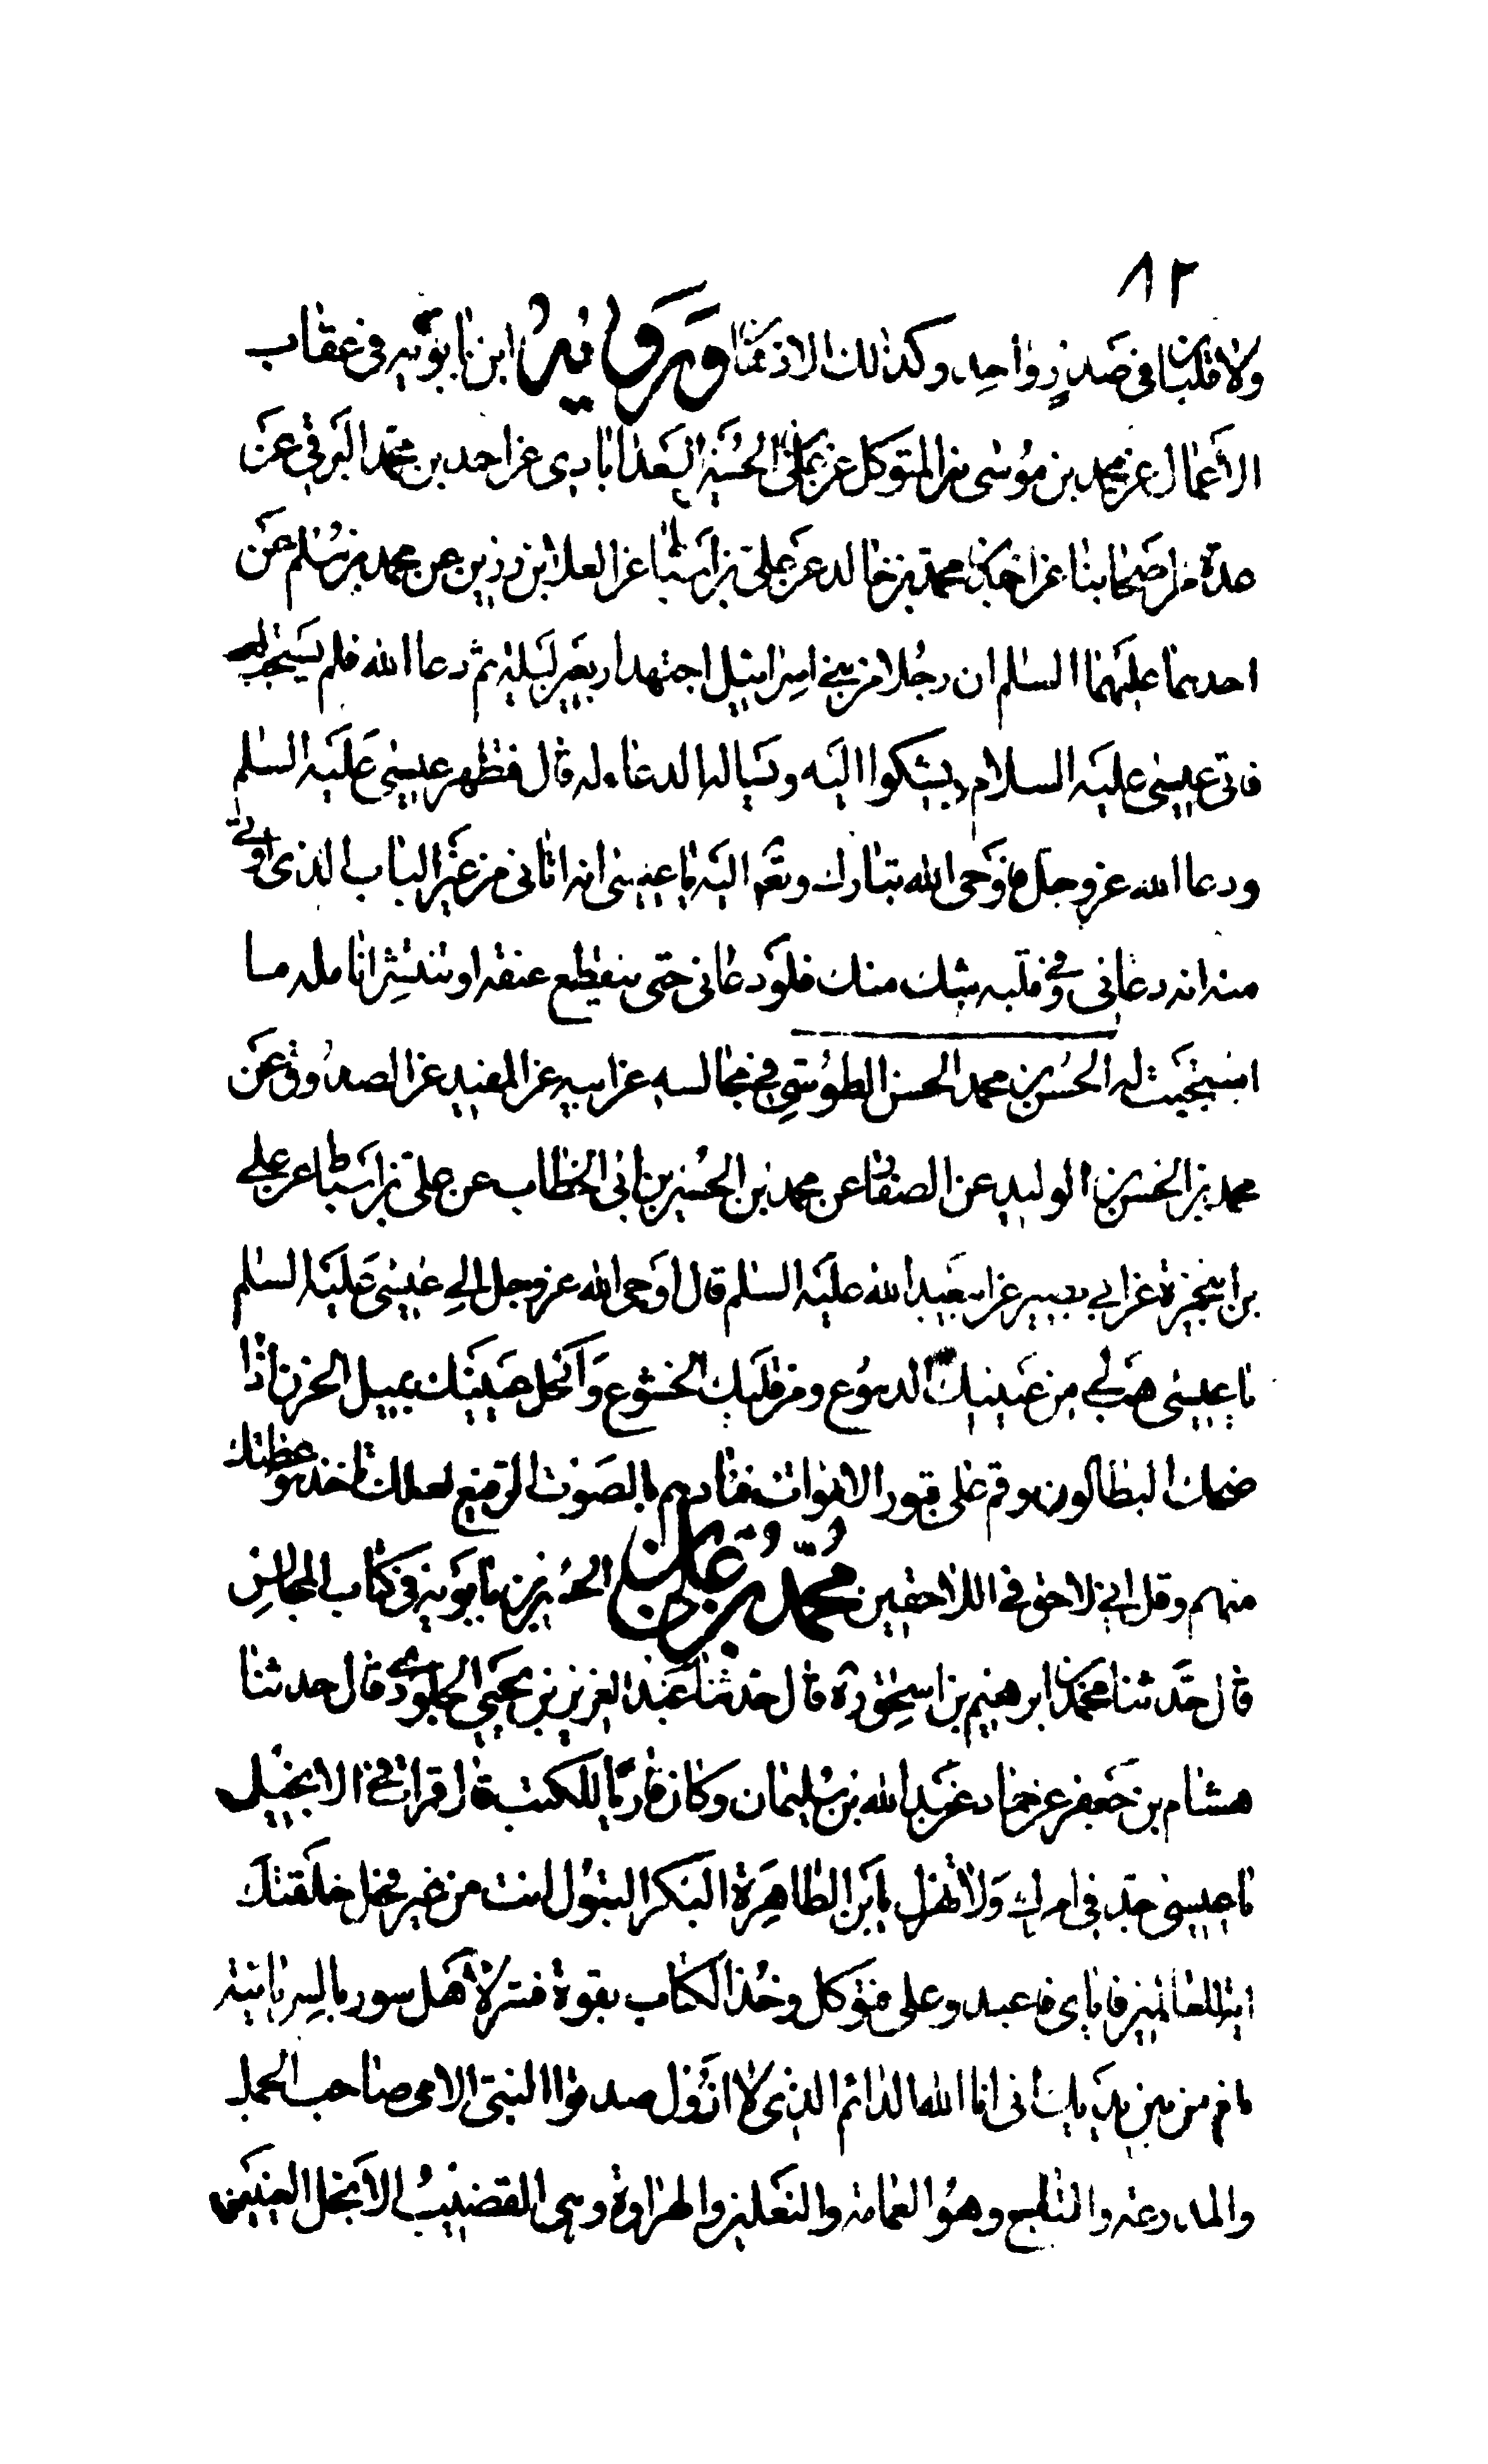 ٨٢
ولا قلبان في صدر واحد وكذلك الاذهان ورواه ابن بابويه في عقاب
الاعمال عن محمد بن موسى بن المتوكل عن علي بن الحسين السعدابادي عن احمد بن محمد البرقي عن
عدة من اصحابنا عن محمد بن خالد عن علي بن اسباط عن العلا ابن رزين عن محمد بن مسلم عن
احدهما عليهما السلم ان رجلا من بني اسرائيل اجتهد اربعين ليلة ثم دعا الله فلم يستجب له
فاتى عيسى عليه السلام يشكوا اليه ويساله الدعاء له قال فتطهر عيسى عليه السلم
ودعا الله عز وجل فاوحى الله تبارك وتعالى اليه يا عيسى انه اتاني من غير الباب الذي اوتى
منه انه دعاني وفي قلبه شك منك فلو دعاني حتى ينقطع عنقه او تنتثر انامله ما
استجيبت له الحسن بن محمد الحسن الطوسي في مجالسه عن ابيه عن المفيد عن الصدوق عن
محمد بن الحسن بن الوليد عن الصفار عن محمد بن الحسين بن ابي الخطاب عن علي بن اسباط عن علي
بن ابي حمزة عن ابي بصير عن ابي عبد الله عليه السلم قال اوحى الله عز وجل الى عيسى عليه السلم
يا عيسى هب لي من عينيك الدموع ومن قلبك الخشوع واكحل عينيك بميل الحزن اذا
ضحك البطالون وقم على قبور الاموات فنادهم بالصوت الرفيع لعلك تاخذ موعظتك
منهم وقل اني لاحق في اللاحقين محمد بن علي بن الحسين بن بابويه في كتاب المجالس
قال حدثنا محمد بن ابرهيم بن اسحق ره قال حدثنا عبد العزيز بن يحيى الجلودي قال حدثنا
هشام بن جعفر عن حماد عن عبد الله بن سليمان وكان قاريا للكتب قال قرات في الانجيل
يا عيسى جد في امرك ولا تهزل يا بن الطاهرة البكر البتول انت من غير فحل خلقتك
اية للعالمين فاياي فاعبد وعلي فتوكل وخذ الكتاب بقوة فسر لاهل سوريا بالسريانية
من بين يديك اني انا الله الدائم الذي لا ازول صدقوا النبي الامي صاحب الجمل
والمدرعة والتاج وهو العمامة والنعلين والهراوة وهي القضيب الانجل العينين